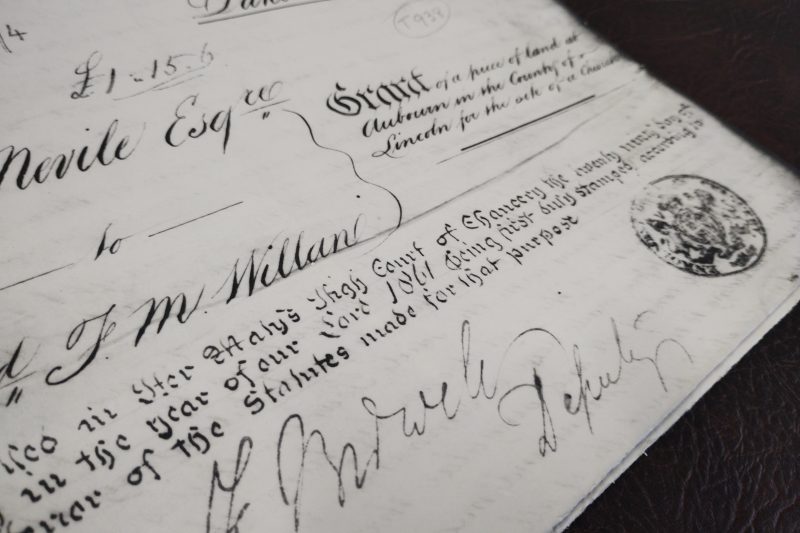 /4
T938
£1.15.6
Nevile Esqre
Grant of a piece of land at
Aubourn in the County of
Lincoln for the site of a Church
to
F. M. Willan
in Her Maty's High Court of Chancery the twenty ninth day of
in the Year of our Lord 1861 being first duly stamped according to
tenor of the Statutes made for that purpose
Deputy